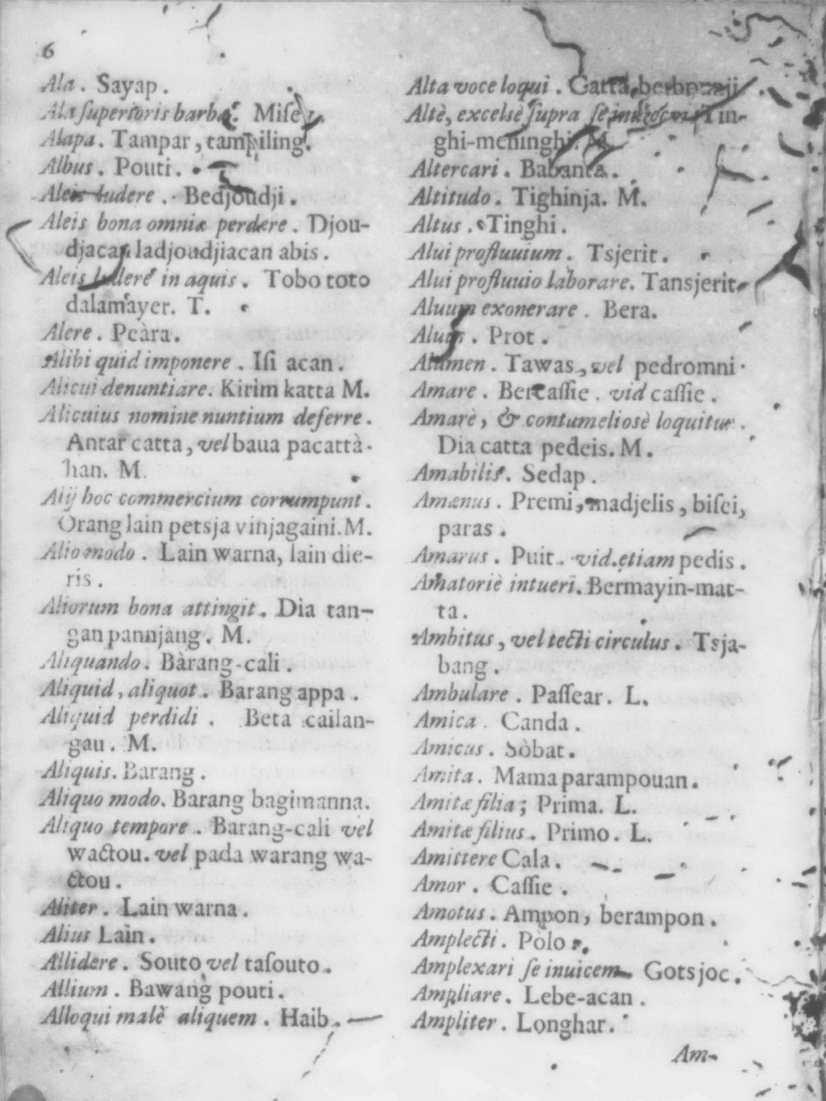 6
Ala. Sayap.
Ala superioris barbæ. Mise
Alapa. Tampar, tampiling.
Albus. Pouti.
Aleis ludere. Bedjoudji.
Aleis bona omnia perdere. Djou-
djacan ladjoudjiacan abis.
Aleis ludere in aquis. Tobo toto
dalamayer. T.
Alere. Peàra.
Alibi quid imponere. Isi acan.
Alicui denuntiare. Kirim katta M.
Alicuius nomine nuntium deferre.
Antar catta, vel baua pacattà-
han. M.
Alij hoc commercium corrumpunt.
Orang lain petsja vinjagaini. M.
Alio modo. Lain warna, lain die-
ris.
Aliorum bona attingit. Dia tan-
gan pannjang. M.
Aliquando. Bàrang-cali.
Aliquid, aliquot. Barang appa.
Aliquid perdidi. Beta cailan-
gau. M.
Aliquis. Barang.
Aliquo modo. Barang bagimanna.
Aliquo tempore. Barang-cali vel
wactou. vel pada warang wa-
ctou.
Aliter. Lain warna.
Alius Lain.
Allidere. Souto vel tasouto.
Allium. Bawang pouti.
Alloqui malè aliquem. Haib.
Alta voce loqui. Catta
Altè, excelsè supra se Tin-
ghi-meninghi. M.
Altercari. Babanta.
Altitudo. Tighinja. M.
Altus. Tinghi.
Alui profluuium. Tsjerit.
Alui profluuio laborare. Tansjerit.
Aluum exonerare. Bera.
Aluus. Prot.
Alumen. Tawas, vel pedromni.
Amare. Bercassie. vid cassie.
Amarè, & contumeliosè loquitur.
Dia catta pedeis. M.
Amabilis. Sedap.
Amænus. Premi, madjelis, bisei,
paras.
Amarus. Puit. vid. etiam pedis.
Amatoriè intueri. Bermayin-mat-
ta.
Ambitus, vel tecti circulus. Tsja-
bang.
Ambulare. Passear. L.
Amica. Canda.
Amicus. Sòbat.
Amita. Mama parampouan.
Amitæ filia; Prima. L.
Amitæ filius. Primo. L.
Amittere Cala.
Amor. Cassie.
Amotus. Ampon, berampon.
Amplecti. Polo
Amplexari se inuicem. Gotsjoc.
Ampliare. Lebe-acan.
Ampliter. Longhar.
Am-